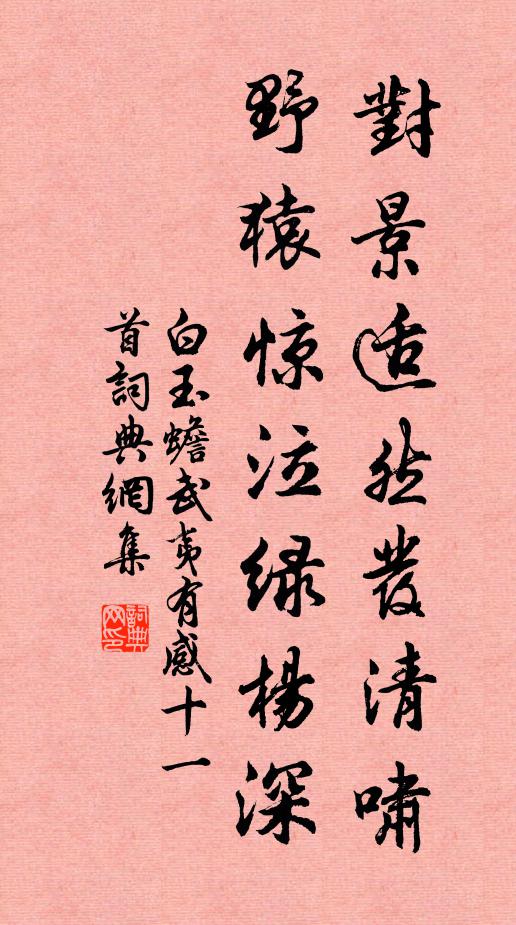 對景适然發清嘯
野猿惊泣绿楊深
白玉蟾武夷有感十一
首詞典網集
詞典網印